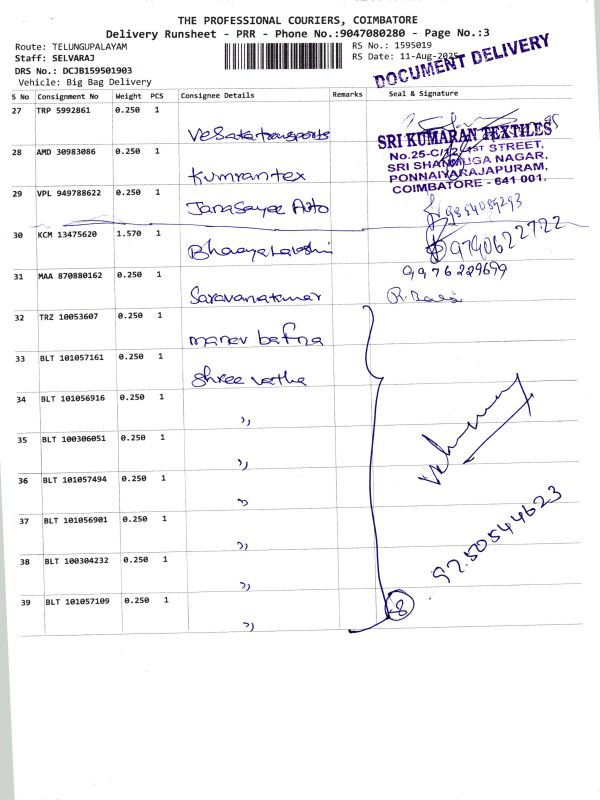 THE PROFESSIONAL COURIERS, COIMBATORE
Delivery Runsheet - PRR - Phone No.:9047080280 - Page No.:3
Route: TELUNGUPALAYAM
Staff: SELVARAJ
DRS No.: DCJB159501903
Vehicle: Big Bag Delivery
RS No.: 1595019
RS Date: 11-Aug-2025
DOCUMENT DELIVERY
S No Consignment No Weight PCS Consignee Details Remarks Seal & Signature
27 TRP 5992861 0.250 1
28 AMD 30983086 0.250 1 Kumrantex
SRI KUMARAN TEXTILES
No.25-C/12, 1ST STREET,
SRI SHANMUGA NAGAR,
PONNAIYARAJAPURAM,
COIMBATORE - 641 001.
29 VPL 949788622 0.250 1 9884089293
30 KCM 13475620 1.570 1 9790622722
9976229699
31 MAA 870880162 0.250 1 Saravanakumar
32 TRZ 10053607 0.250 1 manev bafna
33 BLT 101057161 0.250 1 Shree
34 BLT 101056916 0.250 1 ,,
35 BLT 100306051 0.250 1 ,,
36 BLT 101057494 0.250 1 ,,
37 BLT 101056901 0.250 1 ,,
38 BLT 100304232 0.250 1 ,,
39 BLT 101057109 0.250 1 ,,
9750544623
8